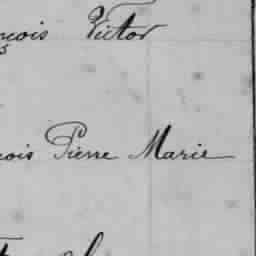 nçois Victor
çois Pierre Marie